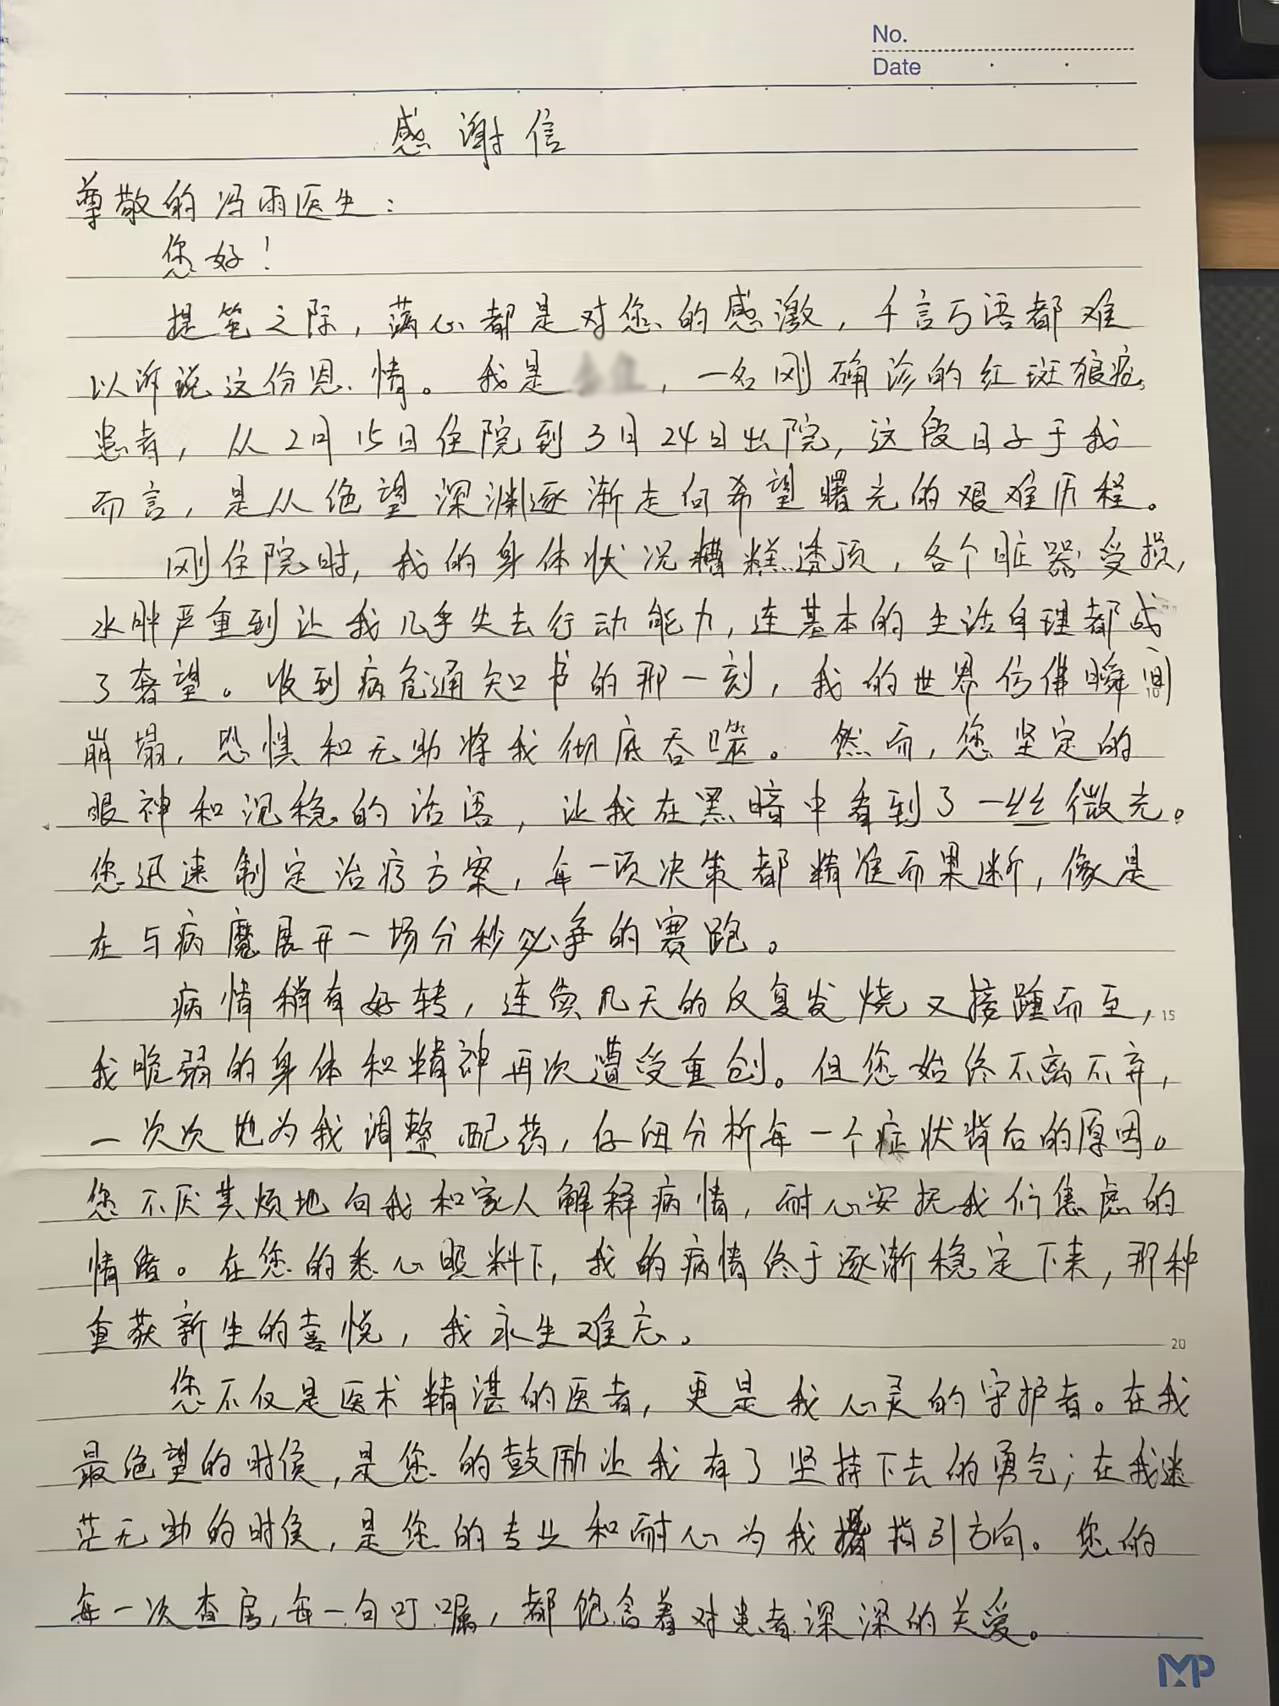 No.
Date
感谢信
尊敬的冯雨医生：
您好！
提笔之际，满心都是对您的感激，千言万语都难
以诉说这份恩情。我是，一名刚确诊的红斑狼疮
患者，从2月15日住院到3月24日出院，这段日子于我
而言，是从绝望深渊逐渐走向希望曙光的艰难历程。
刚住院时，我的身体状况糟糕透顶，各个脏器受损，
水肿严重到让我几乎失去行动能力，连基本的生活自理都成
了奢望。收到病危通知书的那一刻，我的世界仿佛瞬间
10
崩塌，恐惧和无助将我彻底吞噬。然而，您坚定的
眼神和沉稳的话语，让我在黑暗中看到了一丝微光。
您迅速制定治疗方案，每一项决策都精准而果断，像是
在与病魔展开一场分秒必争的赛跑。
病情稍有好转，连续几天的反复发烧又接踵而至，
15
我脆弱的身体和精神再次遭受重创。但您始终不离不弃，
一次次地为我调整配药，仔细分析每一个症状背后的原因。
您不厌其烦地向我和家人解释病情，耐心安抚我们焦虑的
情绪。在您的悉心照料下，我的病情终于逐渐稳定下来，那种
重获新生的喜悦，我永生难忘。
20
您不仅是医术精湛的医者，更是我心灵的守护者。在我
最绝望的时候，是您的鼓励让我有了坚持下去的勇气；在我迷
茫无助的时候，是您的专业和耐心为我指引方向。您的
每一次查房，每一句叮嘱，都饱含着对患者深深的关爱。
MP